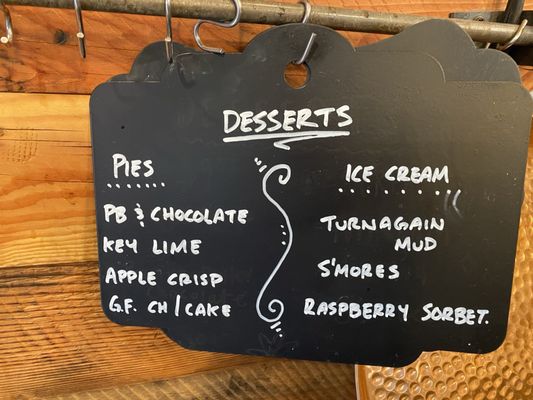 DESSERTS
PIES
PB & CHOCOLATE
KEY LIME
APPLE CRISP
G.F. CH/CAKE
ICE CREAM
TURNAGAIN
MUD
S'MORES
RASPBERRY SORBET.